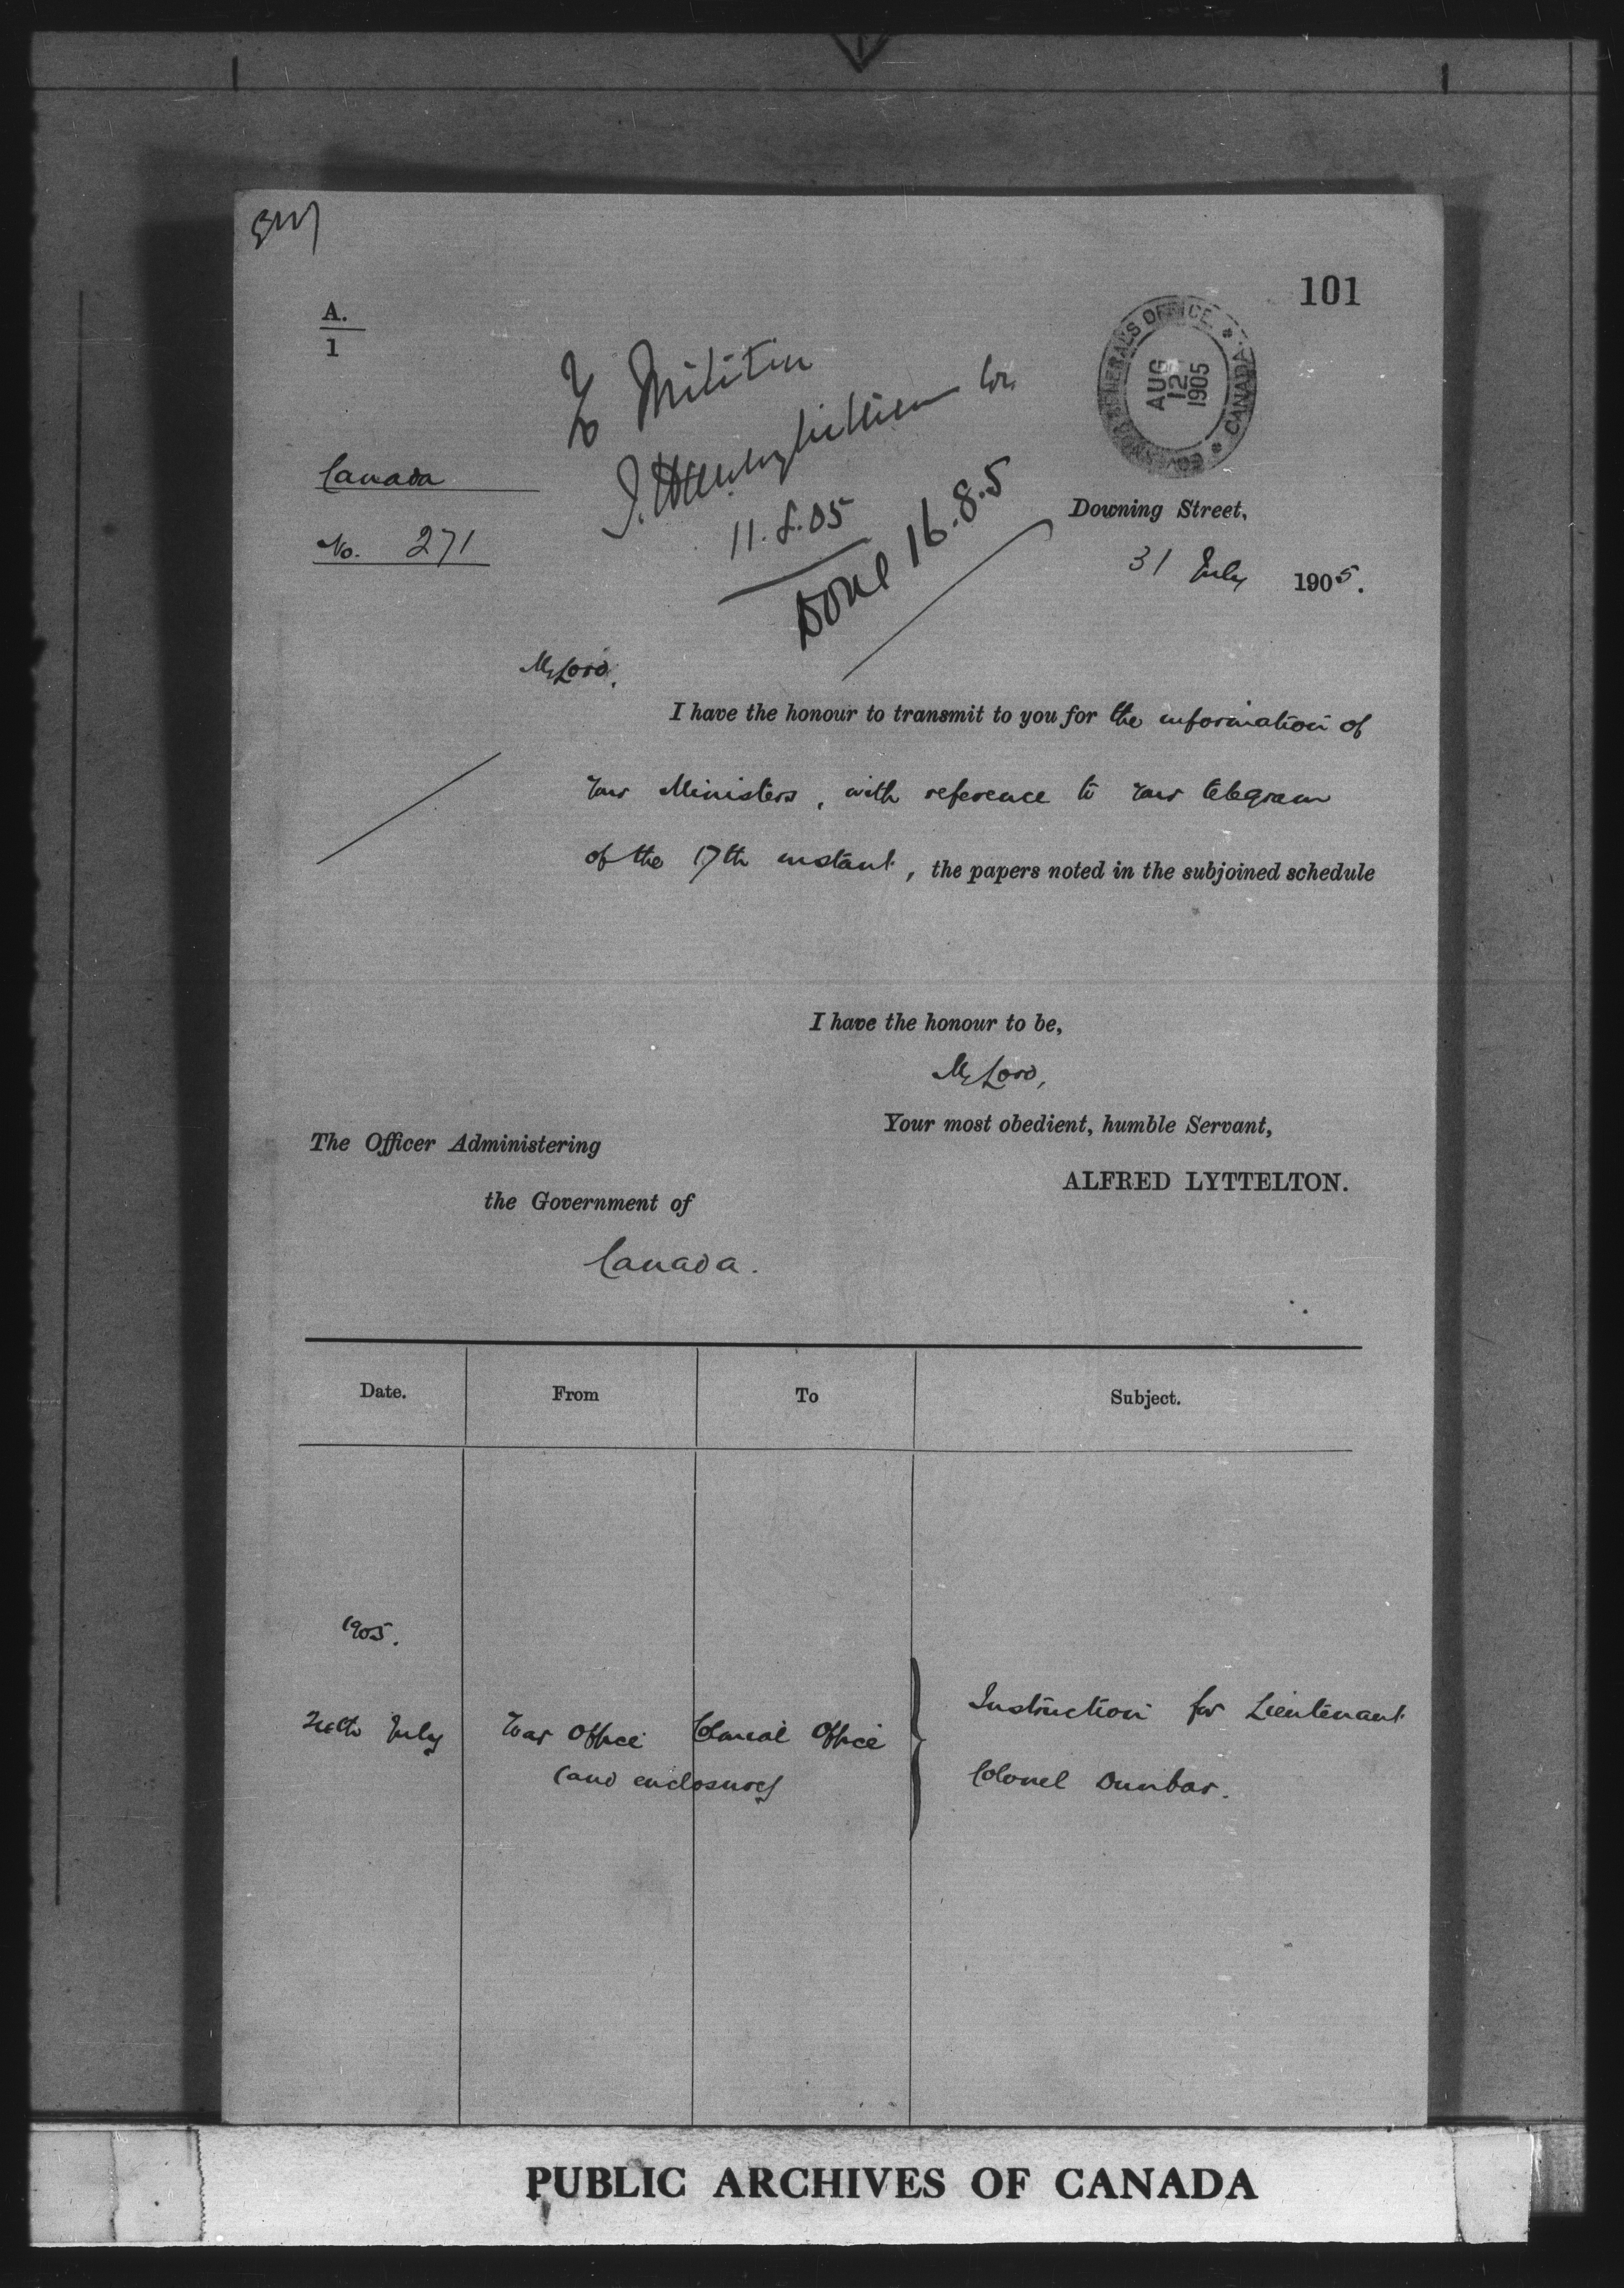 101
A.
1
GOVERNOR GENERAL'S OFFICE * CANADA *
AUG
12
1905
To Militia
11.8.05
Done 16.8.5
Canada
No. 271
Downing Street,
31 July 1905.
My Lord,
I have the honour to transmit to you for the information of
Your Ministers, with reference to your telegram
of the 17th instant, the papers noted in the subjoined schedule
I have the honour to be,
My Lord,
Your most obedient, humble Servant,
ALFRED LYTTELTON.
The Officer Administering
the Government of
Canada.
Date. From To Subject.
1905.
July War Office Colonial Office Instruction for Lieutenant
(and enclosures) Colonel Dunbar.
PUBLIC ARCHIVES OF CANADA